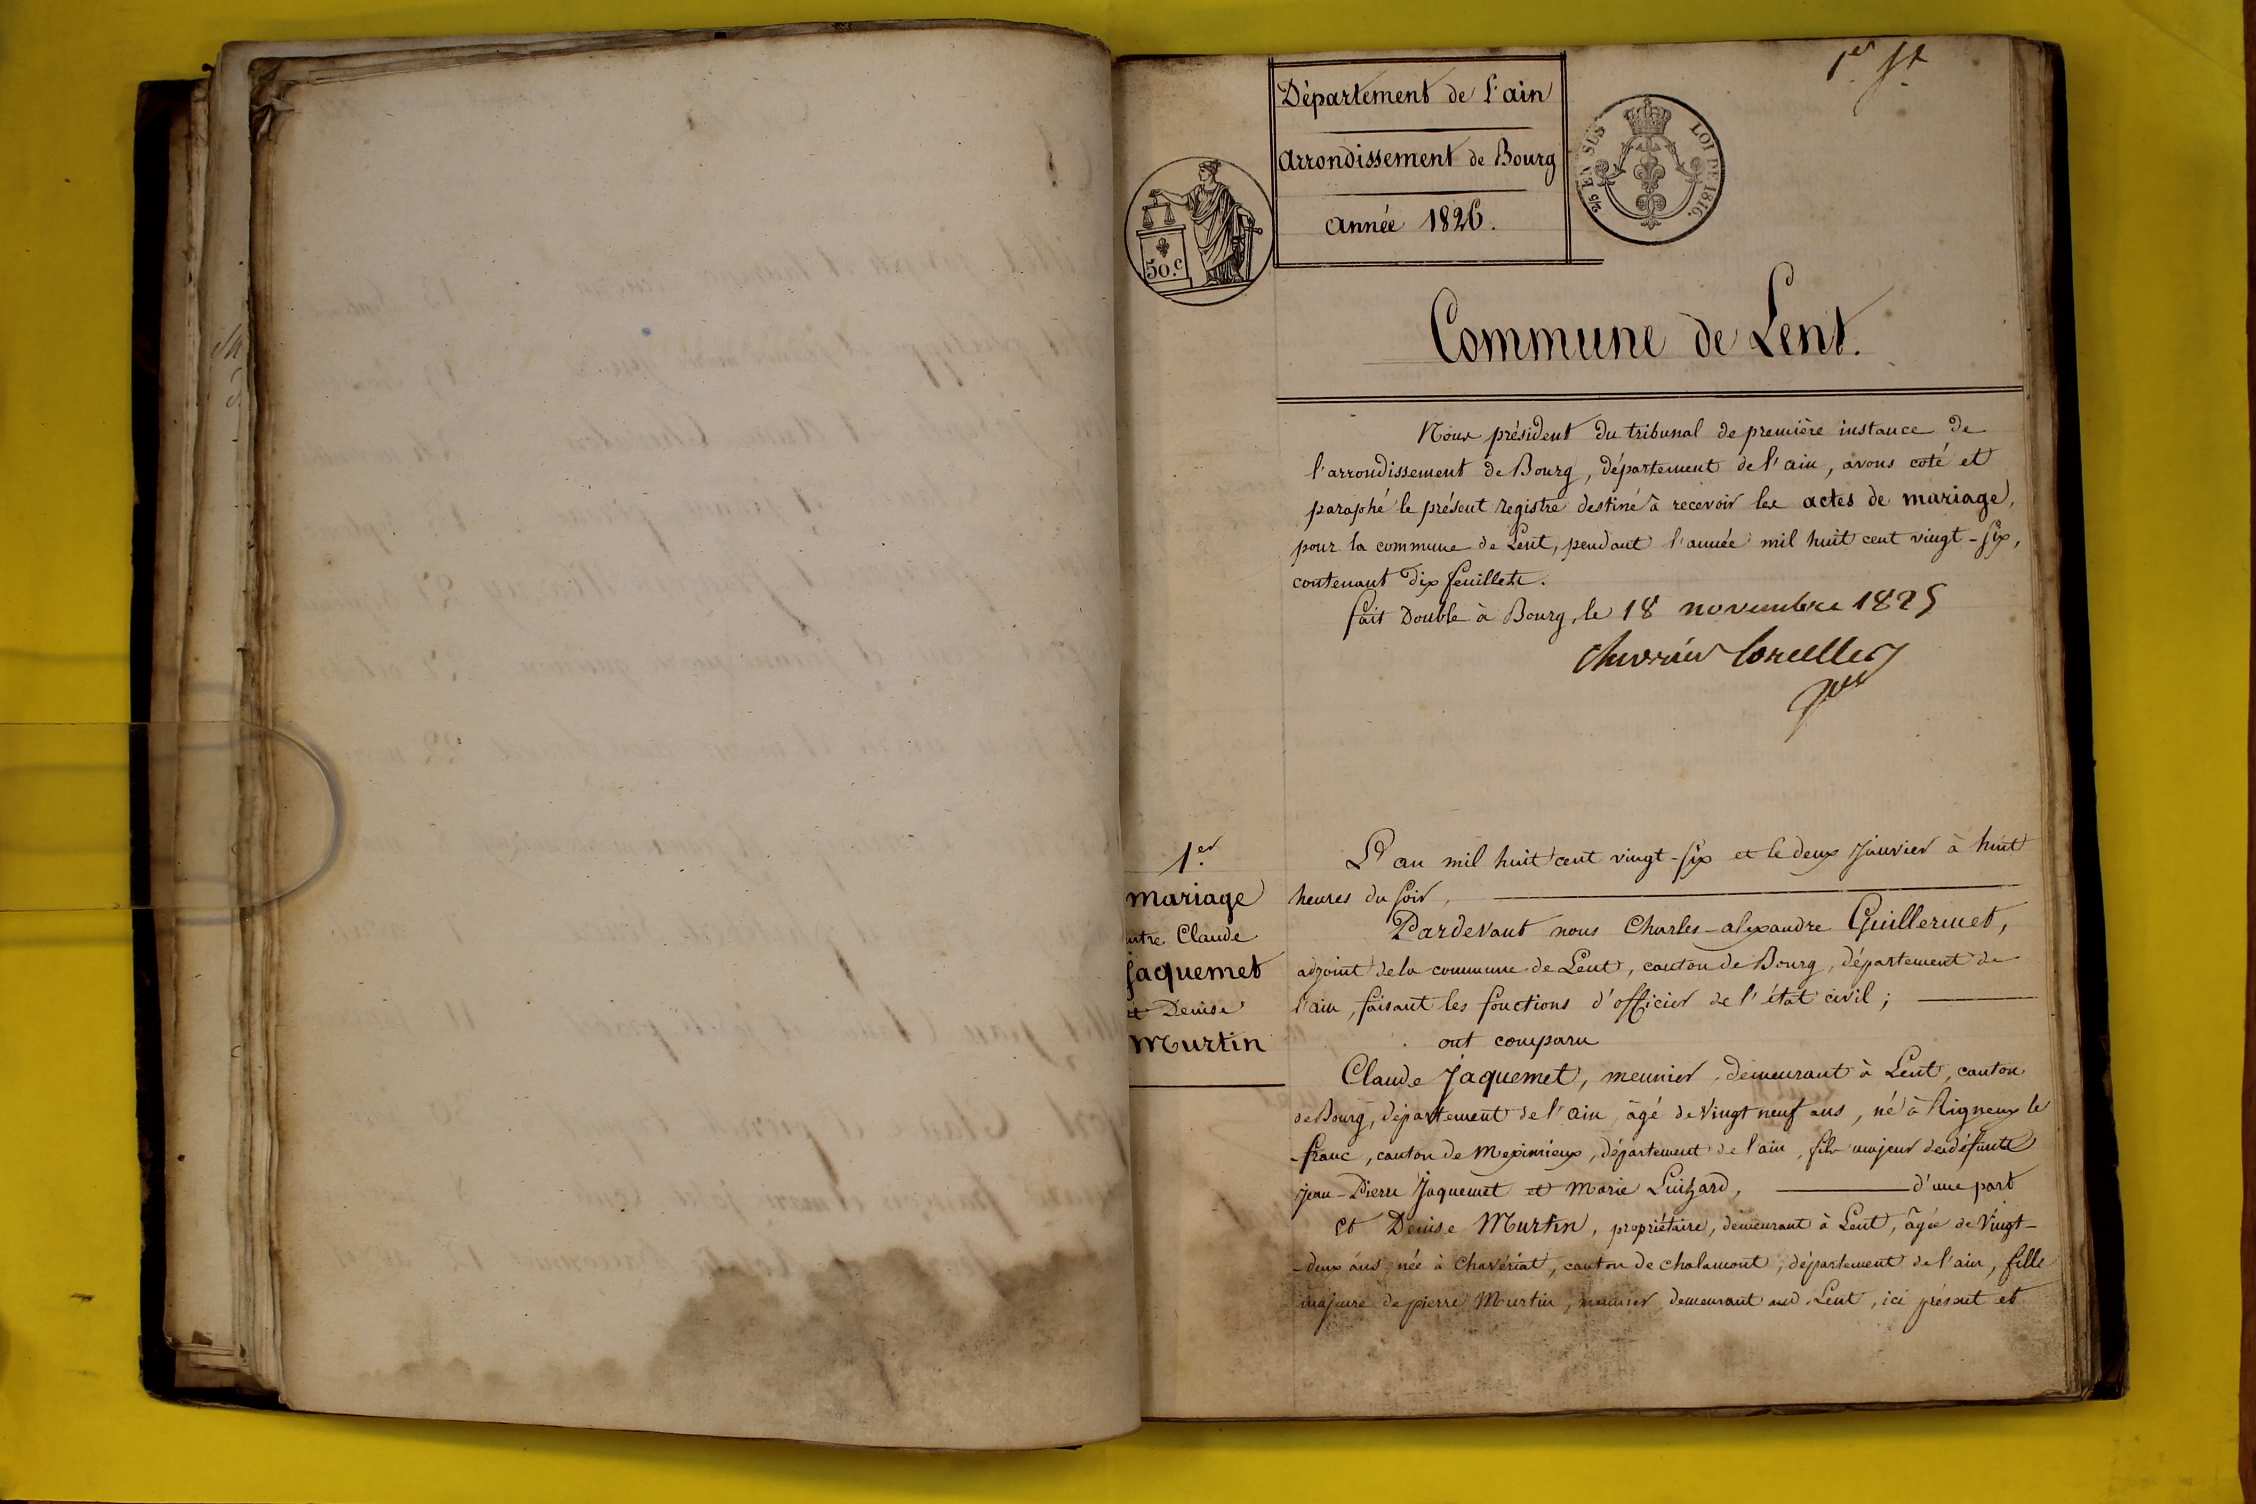 1er ft
Département de l'ain
arrondissement de Bourg
année 1826.
50.c
EN SUS
LOI DE 1816.
Commune de Lent.
Nous président du tribunal de première instance de
l'arrondissement de Bourg, département de l'ain, avons coté et
paraphé le présent registre destiné à recevoir les actes de mariage,
pour la commune de Lent, pendant l'année mil huit cent vingt-six,
contenant dix feuillets.
fait Double à Bourg, le 18 novembre 1825
1er
mariage
entre Claude
Jaquemet
et Denise
Murtin
L'an mil huit cent vingt-six et le deux Janvier à huit
heures du soir,
Pardevant nous Charles-alexandre Guillermet,
adjoint de la commune de Lent, canton de Bourg, département de
l'ain, faisant les fonctions d'officier de l'état civil;
ont comparu
Claude Jaquemet, meunier, demeurant à Lent, canton
de Bourg, département de l'ain, âgé de vingt neuf ans, né à Rigneux le
-franc, canton de Meximieux, département de l'ain, fils majeur de défunts
Jean-Pierre Jaquemet et Marie Luizard, d'une part
et Denise Murtin, propriétaire, demeurant à Lent, âgée de Vingt-
-deux ans, née à Chavériat, canton de chalamont, département de l'ain, fille
majeure de pierre Murtin, meunier, demeurant aud. Lent, ici présent et